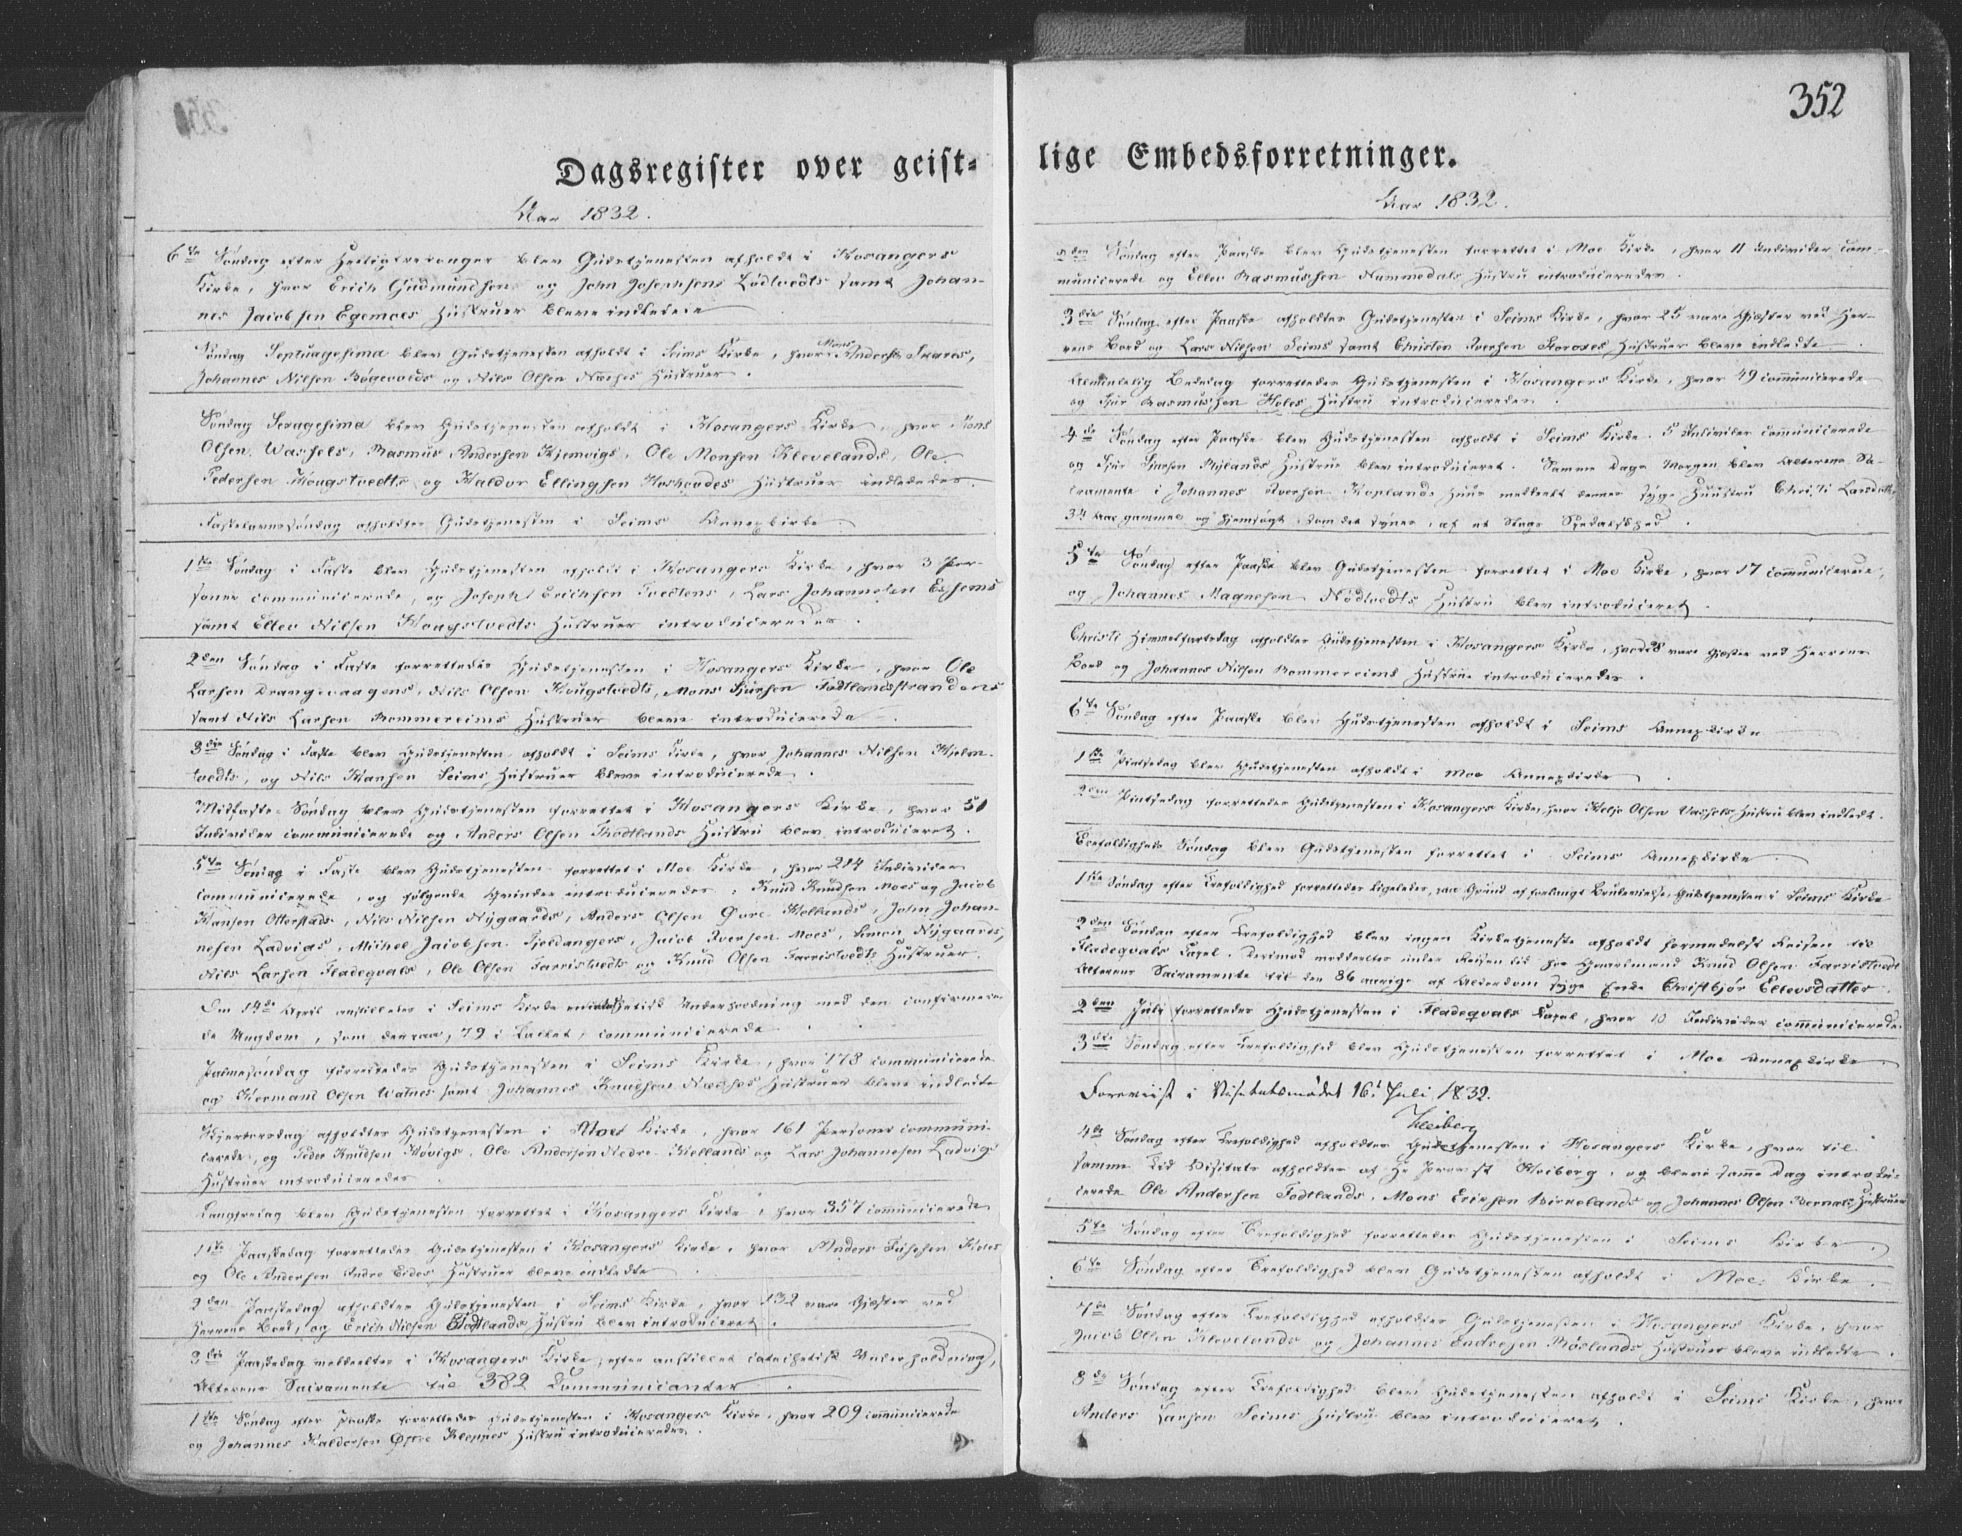 352
Dagsregister over geist-
Aar 1832.
6te Søndag efter Helligtrekonger blev Gudstjenesten afholdt i Hosangers
Kirke, hvor Erich Gudmundsens og John Josephsens Lodtvedts samt Johan-
nes Jacobsen Egemoes Hustruer bleve indledede
Søndag Septuagesima blev Gudstjenesten afholdt i Seims Kirke, hvor Mons Anders
Johannes Nilsen Bøgevolds og Nils Olsen Næshes Hustruer.
Søndag Sexagesima blev Gudstjenesten afholdt i Hosangers Kirke, hvor Mons
Olsen Washels, Rasmus Andersen Hjemvigs, Ole Monsen Klevelands, Ole
Pedersen Hougstvedts og Haldor Ellingsen Hushovdes Hustruer indlededes.
Fastelavnssøndag afholdtes Gudstjenesten i Seims Annexkirke
1ste Søndag i Faste blev Gudstjenesten afholdt i Hosangers Kirke, hvor 3 Per-
soner communicerede, og Joseph Erichsen Tvedtens, Lars Johannesen
samt Ellev Nilsen Hougstvedts Hustruer introduceredes.
2den Søndag i Faste forrettedes Gudstjenesten i Hosangers Kirke, hvor Ole
Larsen Drangevaagens, Nils Olsen Hougstvedts, Mons Sjursen Todtlandsstrandens
samt Nils Larsen Rommereims Hustruer bleve introducerede.
3die Søndag i Faste blev Gudstjenesten afholdt i Seims Kirke, hvor Johannes Nilsen Hjelm-
tvedts, og Nils Hansen Seims Hustruer bleve introducerede.
Midfaste-Søndag blev Gudstjenesten forrettet i Hosangers Kirke, hvor 51
Individer communicerede og Anders Olsen Todtlands Hustru blev introduceret.
5te Søndag i Faste blev Gudstjenesten forrettet i Moe Kirke, hvor 214 Individer
communicerede, og følgende Qvinder introduceredes: Knud Knudsen Moes og Jacob
Hansen Otterstads, Nils Nilsen Nygaards, Anders Olsen Øvre-Hellands, John Johan-
nesen Ladvigs, Michel Jacobsen Fjeldangers, Jacob Iversen Moes, Simon Nygaards,
Nils Larsen Fladeqvals, Ole Olsen Farristvedts og Knud Olsen Farristvedts Hustruer.
Den 14de April anstilledes i Seims Kirke en catechetisk Underholdning med den confirmere-
de Ungdom, som derpaa, 79 i Tallet, communicerede.
Palmesøndag forrettedes Gudstjenesten i Seims Kirke, hvor 178 communicerede
og Hermand Olsen Watnes samt Johannes Knudsen Næshes Hustruer bleve indledte
Skjertorsdag afholdtes Gudstjenesten i Moes Kirke, hvor 161 Personer communi-
cerede, og Peder Knudsen Høvigs, Ole Andersen Nedre-Hellands og Lars Johannesen Ladvigs
Hustruer introduceredes.
Langfredag blev Gudstjenesten forrettet i Hosangers Kirke, hvor 357 communicerede
1ste Paaskedag forrettedes Gudstjenesten i Hosangers Kirke, hvor Anders
og Ole Andersen Indre Eides Hustruer bleve indledte
2den Paaskedag afholdtes Gudstjenesten i Seims Kirke, hvor 132 vare Gjæster ved
Herrens Bord, og Erich Nilsen Todtlands Hustru blev introduceret.
3die Paaskedag meddeeltes i Hosangers Kirke, efter anstillet catechetisk Underholdning,
Alterens Sacramente til 382 Communicanter
1ste Søndag efter Paaske forrettedes Gudstjenesten i Hosangers Kirke, hvor 209 communicerede
og Johannes Haldorsen Øfre Kleppes Hustru introduceredes.
lige Embedsforretninger.
Aar 1832.
2den Søndag efter Paaske blev Gudstjenesten forrettet i Moe Kirke, hvor 11 Individer com-
municerede og Ellev Rasmussen Nummedals Hustru introduceredes.
3die Søndag efter Paaske afholdtes Gudstjenesten i Seims Kirke, hvor 25 vare Gjæster ved Her-
rens Bord og Lars Nilsen Seims samt Christen Iversen Hustruer bleve indledte
Almindelig Bededag forrettedes Gudstjenesten i Hosangers Kirke, hvor 49 communicerede
og Sjur Rasmussen Holes Hustru introduceredes.
4de Søndag efter Paaske blev Gudstjenesten afholdt i Seims Kirke. 5 Individer communicerede
og Sjur Sjursen Rylands Hustrue blev introduceret. Samme Dags Morgen blev Alterens Sa-
cramente i Johannes Iversen Hoplands Huus meddeelt dennes syge Huustru Christi Larsdatter
34 Aar gammel og hjemsøgt, som det synes, af et Slags Spedalskhed.
5te Søndag efter Paaske blev Gudstjenesten forrettet i Moe Kirke, hvor 17 communicerede,
og Johannes Magnesen Nødtvedts Hustru blev introduceret.
Christi Himmelfartsdag afholdtes Gudstjenesten i Hosangers Kirke, hvor vare Gjæster ved Herrens
Bord og Johannes Nilsen Rommereims Hustrue introduceredes.
6te Søndag efter Paaske blev Gudstjenesten afholdt i Seims Annexkirke
1ste Pintsedag blev Gudstjenesten afholdt i Moe Annexkirke
2den Pintsedag forrettedes Gudstjenesten i Hosangers Kirke, hvor Helje Olsen Vashels Hustru blev indledt.
Trefoldigheds Søndag blev Gudstjenesten forrettet i Seims Annexkirke
1ste Søndag efter Trefoldighed forrettedes ligeledes, paa Grund af forlangt Brudevielse, Gudstjenesten i Seims Kirke
2den Søndag efter Trefoldighed blev ingen Kirketjeneste afholdt formedelst Reisen til
Fladeqvals Capel. Derimod meddeeltes under Reisen hid hos Gaardmand Knud Olsen Farristvedt
Alterens Sacramente til den 86 aarige af Alderdom syge Enke Christbjør Ellevsdatter.
2den Juli forrettedes Gudstjenesten i Fladeqvals Capel, hvor 10 Individer communicerede.
3die Søndag efter Trefoldighed blev Gudstjenesten forrettet i Moe Annexkirke
Foreviist i Visitatsmødet 16d Juli 1832.
Kleiberg
4de Søndag efter Trefoldighed afholdtes Gudstjenesten i Hosangers Kirke, hvor til
samme Tid Visitats afholdtes af Hr Provst Kleiberg, og bleve samme Dag introdu-
cerede Ole Andersen Todtlands, Mons Ericsen Birkelands og Johannes Olsen Bernæs Hustruer
5te Søndag efter Trefoldighed forrettedes Gudstjenesten i Seims Kirke.
6te Søndag efter Trefoldighed blev Gudstjenesten afholdt i Moe Kirke.
7de Søndag efter Trefoldighed afholdtes Gudstjenesten i Hosangers Kirke, hvor
Jacob Olsen Klevelands og Johannes Endresen Røslands Hustruer bleve indledte.
8de Søndag efter Trefoldighed blev Gudstjenesten afholdt i Seims Kirke, hvor
Anders Larsen Seims Hustru blev introduceret.